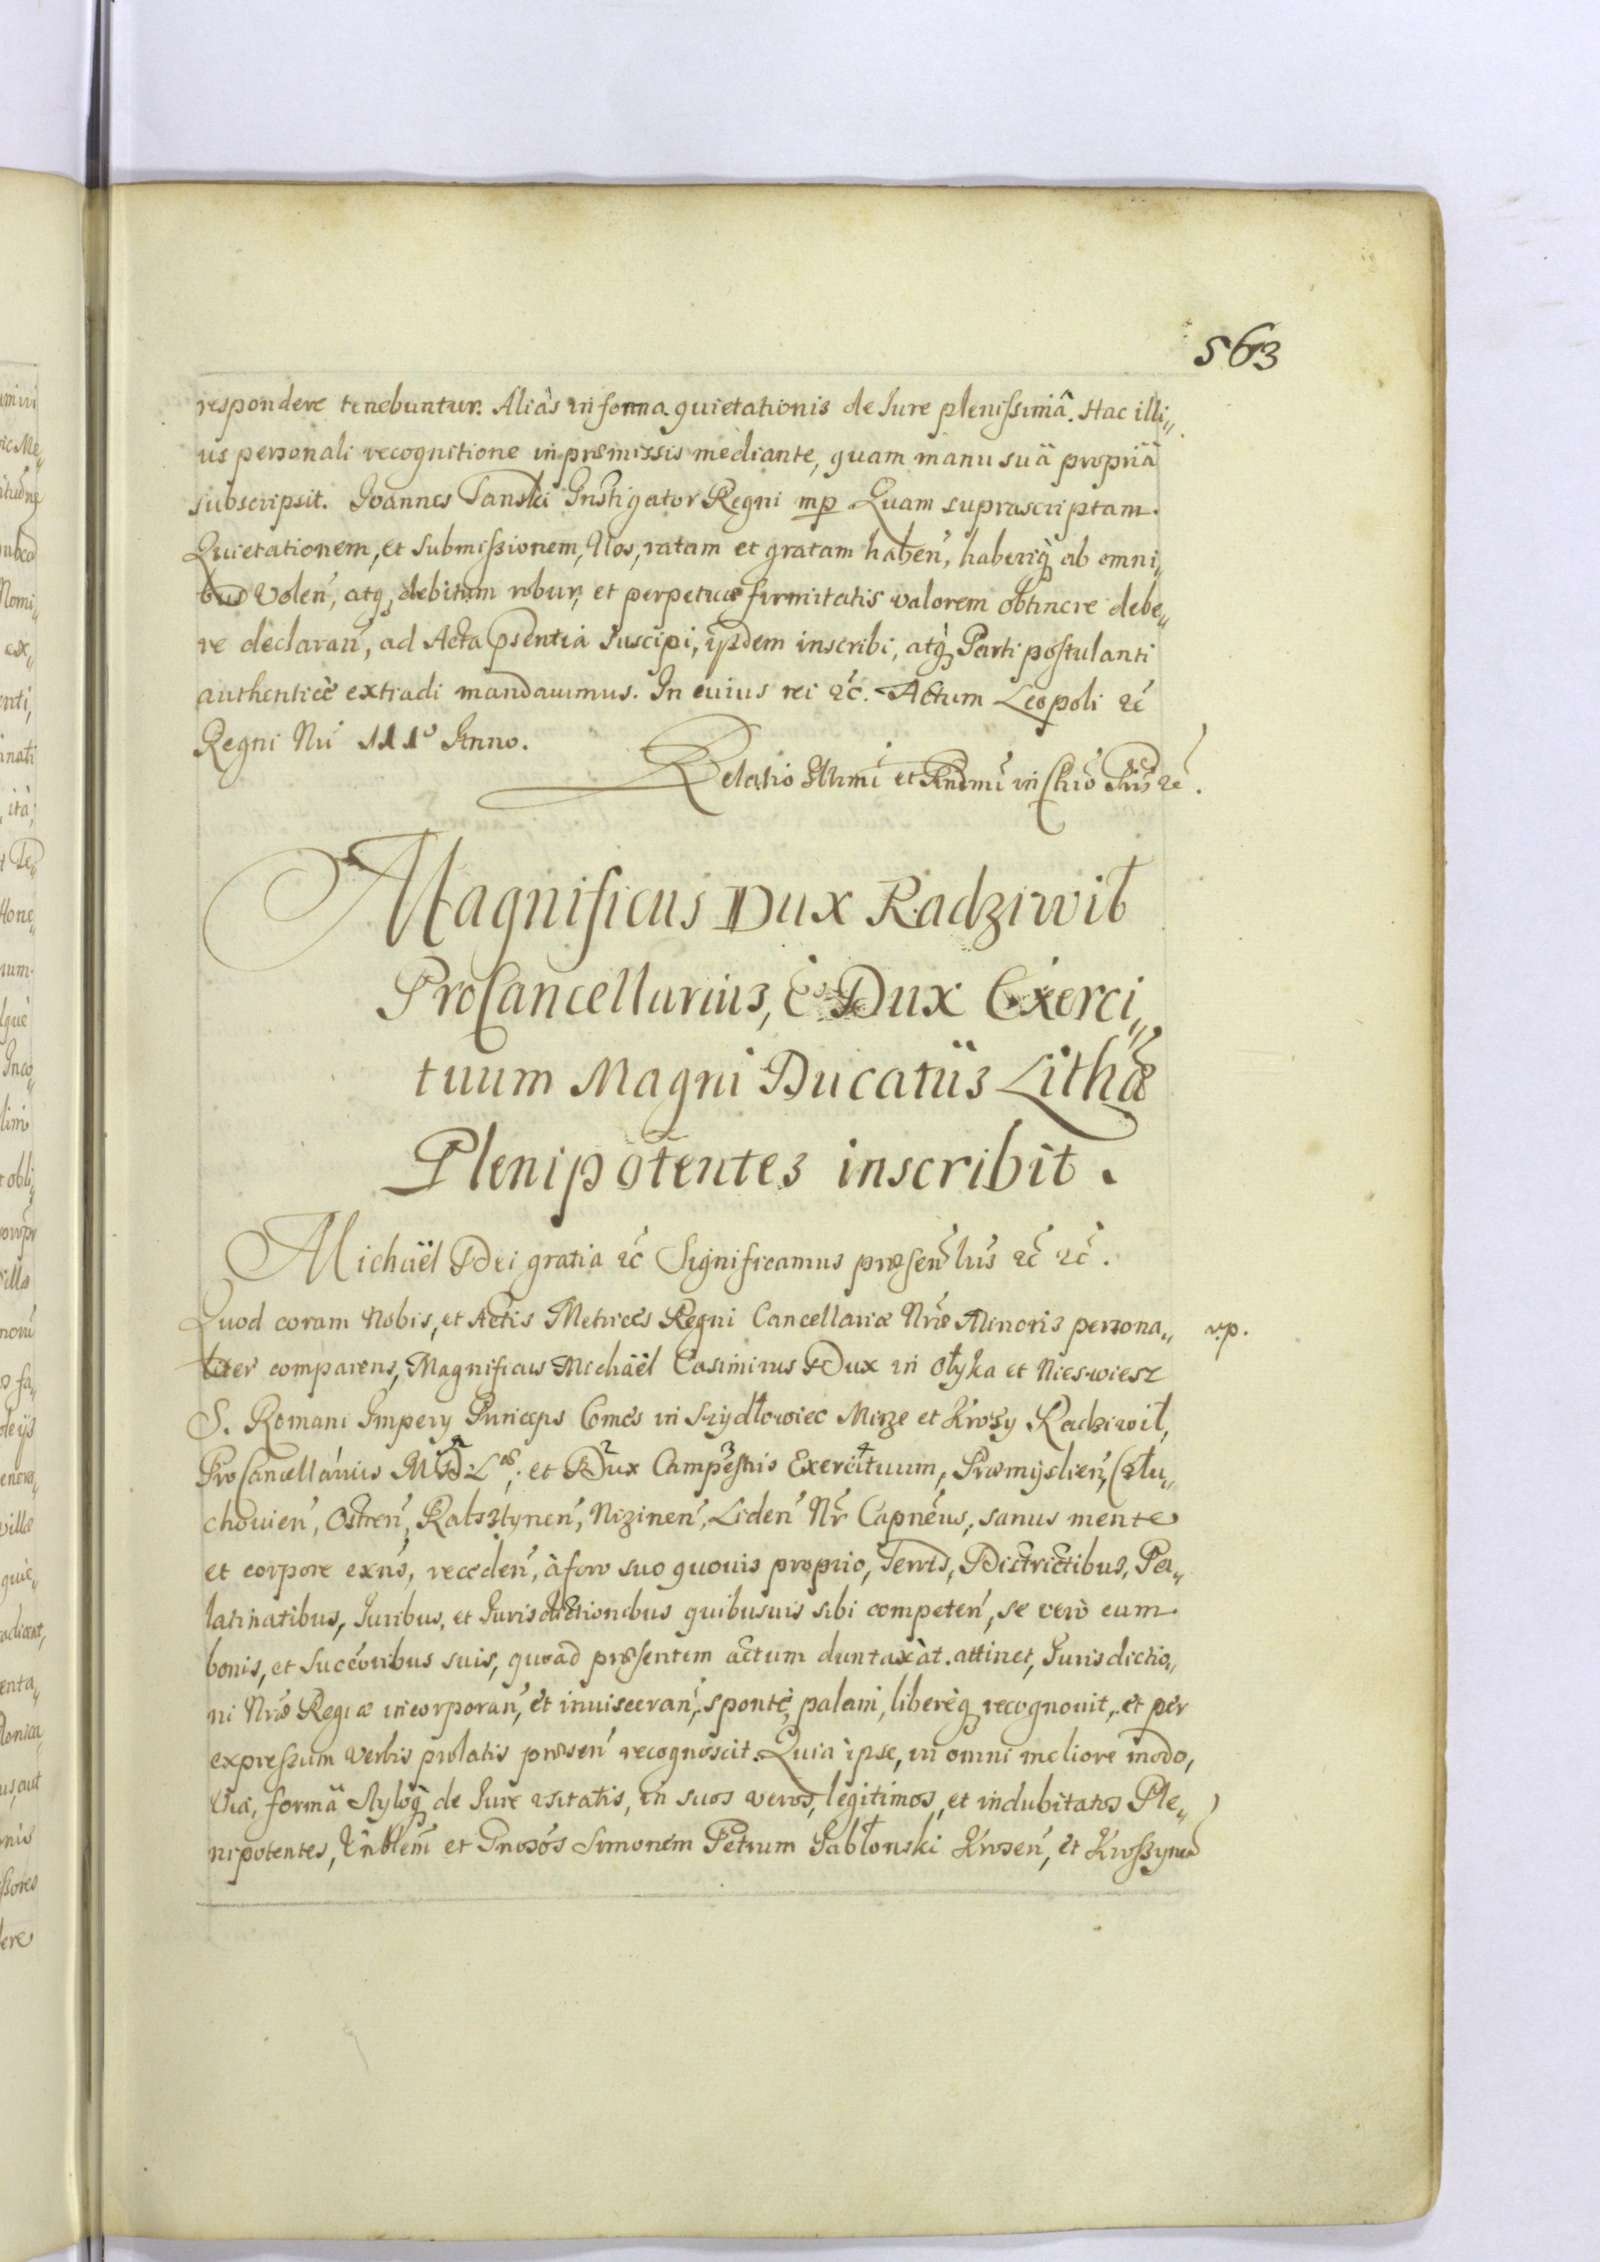 563
respondere tenebuntur. Aliàs in forma quietationis de Iure plenissimâ. Hac illi„
us personali recognitione in præmissis mediante, quam manu suâ propriâ
subscripsit. Joannes Tanski Instigator Regni mp Quam suprascriptam
Quietationem, et Submissionem, Nos, ratam et gratam haben̄, haberiq̀ ab omni„
bus Volen̄, atq̀ debitum robur, et perpetuæ firmitatis valorem obtinere debe„
re declaran̄, ad Acta pn̄tia Suscipi, ijsdem inscribi, atq̀ Parti postulanti
authenticè extradi mandavimus. In cuius rei &c̄. Actum Leopoli &c̄
Regni Nr̄i 111º Anno.
Relatio Illmī et Rndmī in Chrō Pris &c̄.
Magnificus Dux Radziwił
ProCancellarius, & Dux Exerci„
tuum Magni Ducatûs Lithæ
Plenipotentes inscribit.
Michäel Dei gratia &c̄ Significamus præsen̄tbus &c̄ &c̄.
Quod coram Nobis, et Actis Metrices Regni Cancellariæ Nr̄æ Minoris persona„ rp.
liter comparens, Magnificus Michäel Casimirus Dux in Ołyka et Nieswiesz
S. Romani Impery Princeps Comes in Szydłowiec Mirze et Krozy Radziwił,
ProCancellarius M.D.L.æ; et Dux Campestris Exercituum, Præmyslien̄, Człu„
chouien̄, Ostren̄, Rabsztynen̄, Nizinen̄, Liden̄ Nr̄ Capn̄eus, sanus mente
et corpore exn̄s, receden̄, à foro suo quouis proprio, Terris, Districtibus, Pa„
latinatibus, Iuribus, et Iurisdictionibus quibusuis sibi competen̄, se verò cum
bonis, et Succ̄oribus suis, quoad præsentem actum duntaxàt attinet, Jurisdictio„
ni Nr̄æ Regiæ incorporan̄, et inuisceran̄, spontè, palàm, liberèq̀ recognouit, et per
expressum verbis prolatis præsen̄ recognoscit. Quia ipse, in omni meliore modo,
via, formâ stylóq̀ de Iure usitatis, in suos veros, legitimos, et indubitatos Ple„
nipotentes, et Gnosos Simonem Petrum Jabłonski Krosen̄, et